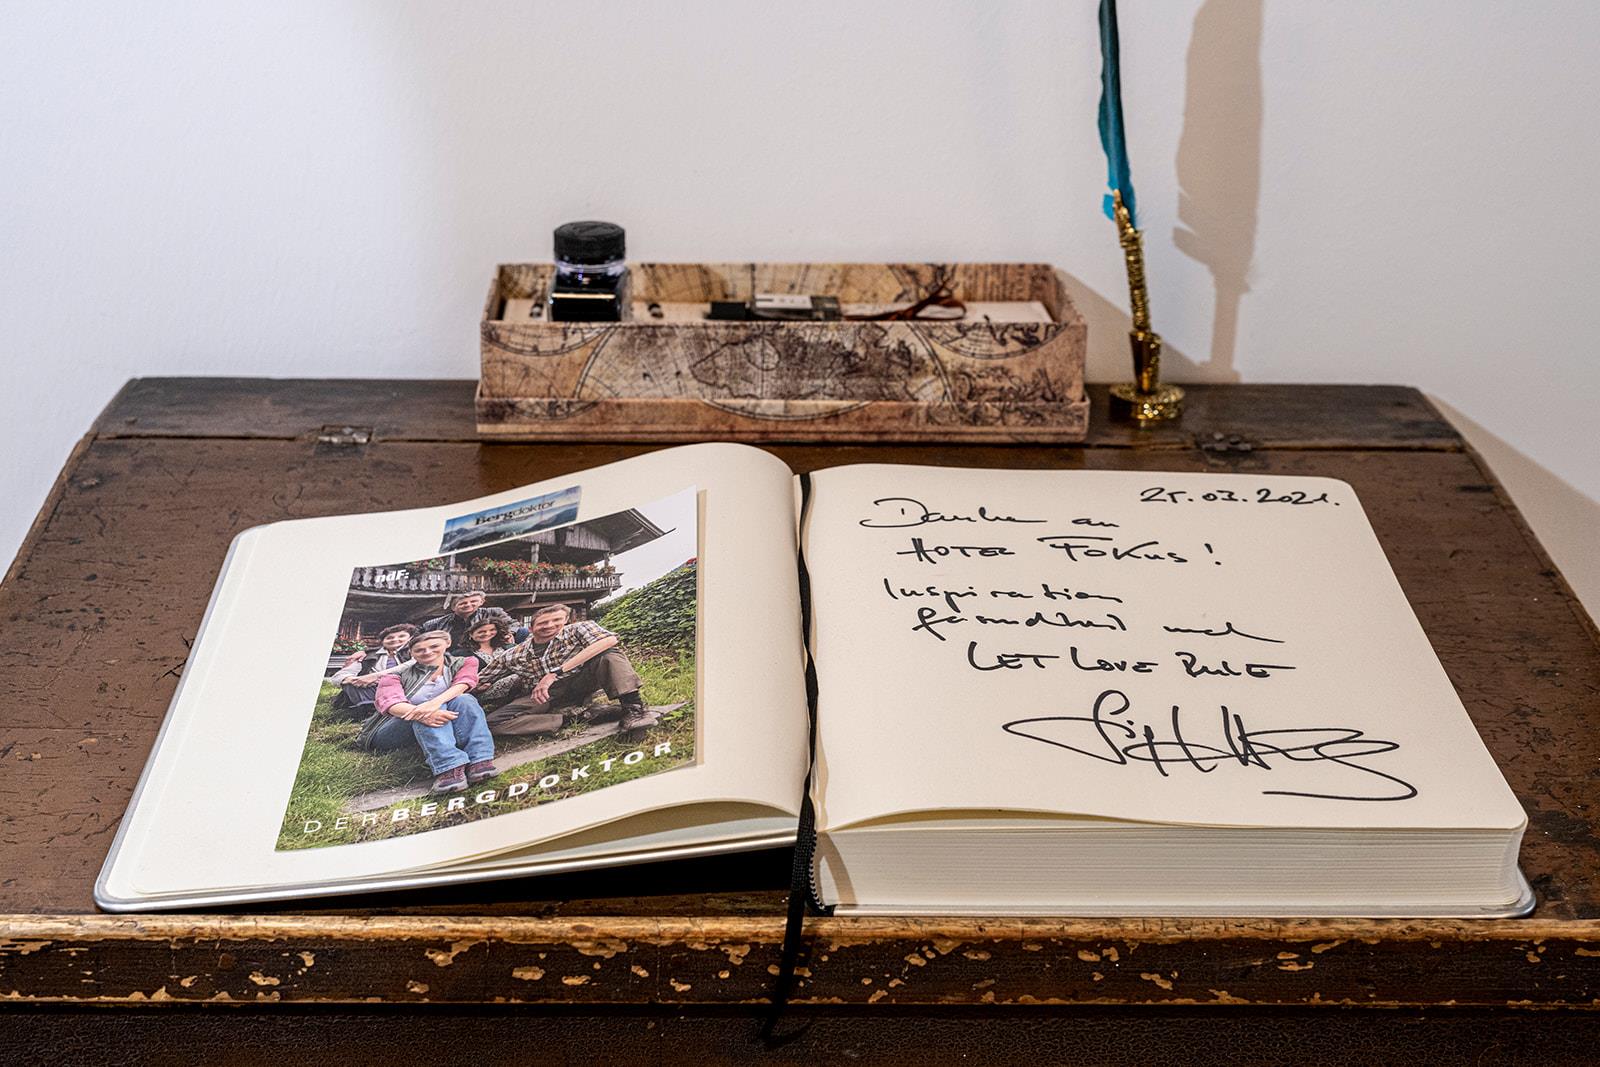 Bergdoktor
ndF:
DER BERGDOKTOR
25.03.2021.
Danke an
HOTEL FOKUS!
Inspiration
Gesundheit und
LET LOVE RULE